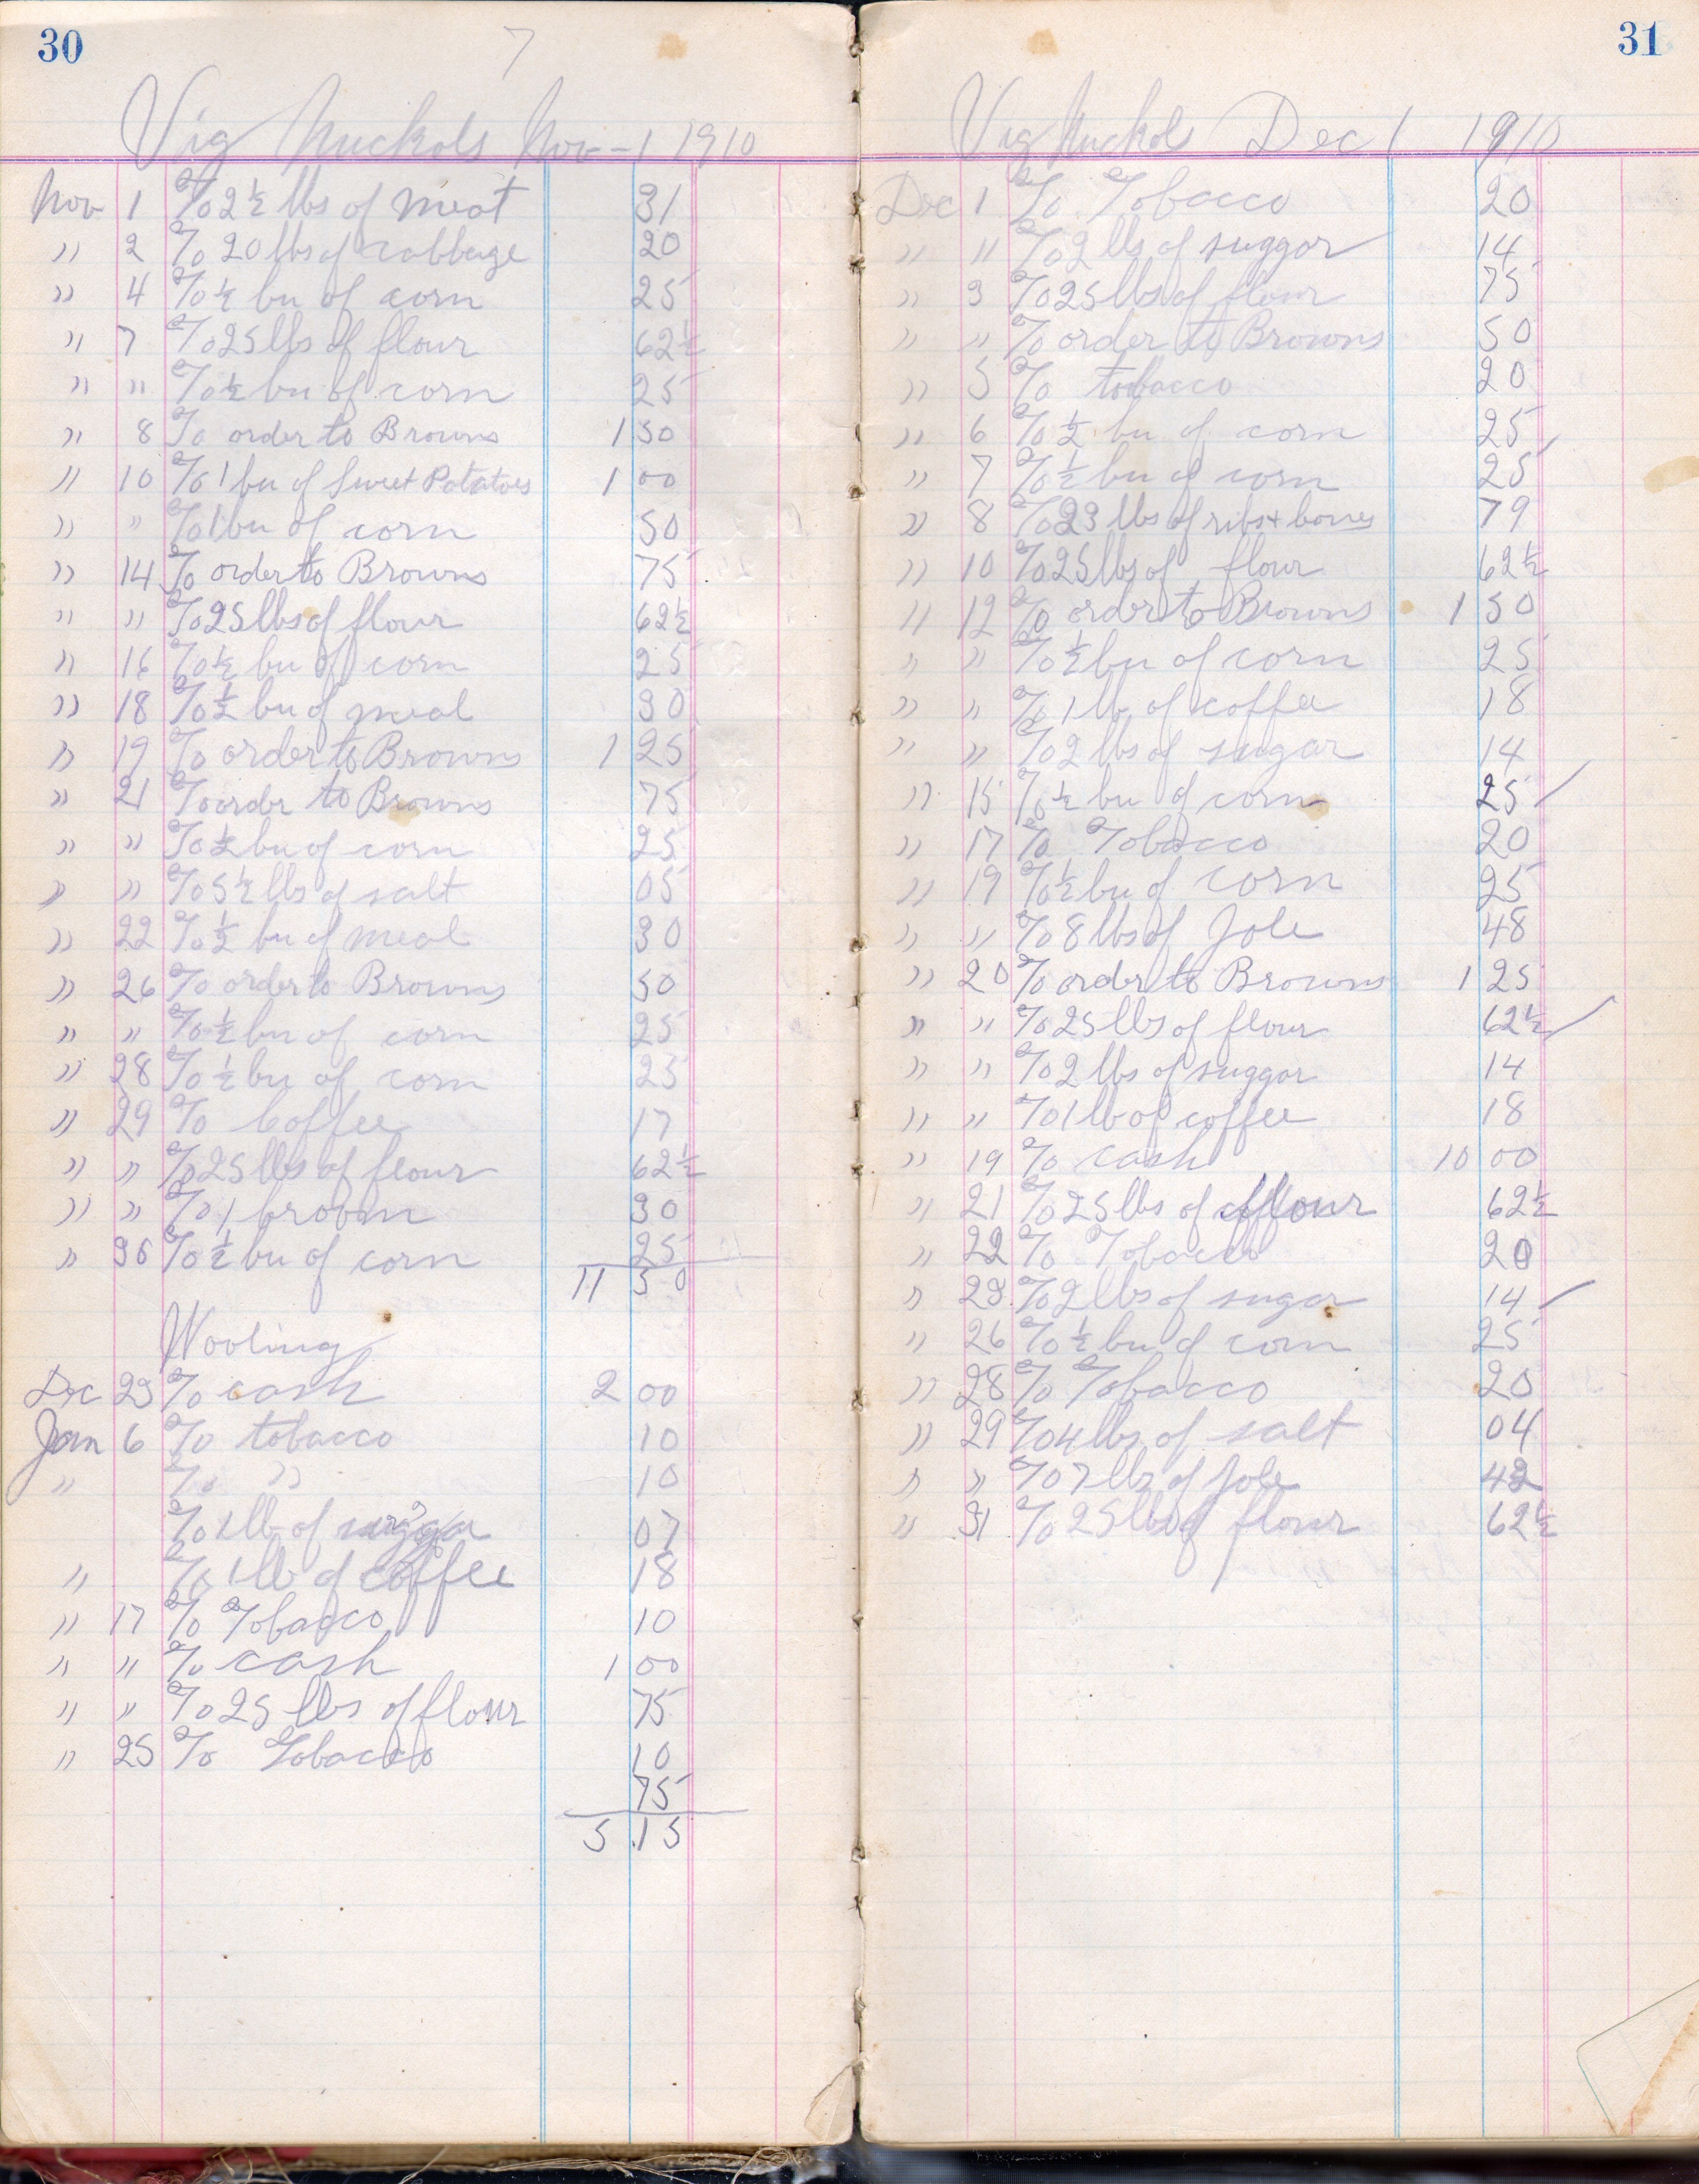 30
7
Vig Nuckols Nov - 1 1910
Nov 1 To 2 1/2 lbs of meat 31
" 2 To 20 lbs of cabbage 20
" 4 To 1/2 bu of corn 25
" 7 To 25 lbs of flour 62 1/2
" " To 1/2 bu of corn 25
" 8 To order to Browns 1 50
" 10 To 1 bu of Sweet Potatoes 1 00
" " To 1 bu of corn 50
" 14 To order to Browns 75
" " To 25 lbs of flour 62 1/2
" 16 To 1/2 bu of corn 25
" 18 To 1/2 bu of meal 30
" 19 To order to Browns 1 25
" 21 To order to Browns 75
" " To 1/2 bu of corn 25
" " To 5 1/2 lbs of salt 05
" 22 To 1/2 bu of meal 30
" 26 To order to Browns 50
" " To 1/2 bu of corn 25
" 28 To 1/2 bu of corn 25
" 29 To Coffee 17
" " To 25 lbs of flour 62 1/2
" " To 1 broom 30
" 30 To 1/2 bu of corn 25
11 50
Wooling
Dec 23 To cash 2 00
Jan 6 To tobacco 10
" To " 10
To 1 lb of suggar 07
" To 1 lb of coffee 18
" 17 To Tobacco 10
" " To cash 1 00
" " To 25 lbs of flour 75
" 25 To Tobacco 10
75
5 15
31
Vig Nuckols Dec 1 1910
Dec 1 To Tobacco 20
" " To 2 lbs of suggar 14
" 3 To 25 lbs of flour 75
" " To order to Browns 50
" 5 To tobacco 20
" 6 To 1/2 bu of corn 25
" 7 To 1/2 bu of corn 25
" 8 To 23 lbs of ribs & bones 79
" 10 To 25 lbs of flour 62 1/2
" 12 To order to Browns 1 50
" " To 1/2 bu of corn 25
" " To 1 lb of coffee 18
" " To 2 lbs of sugar 14
" 15 To 1/2 bu of corn 25
" 17 To Tobacco 20
" 19 To 1/2 bu of corn 25
" " To 8 lbs of Jole 48
" 20 To order to Browns 1 25
" " To 25 lbs of flour 62 1/2
" " To 2 lbs of suggar 14
" " To 1 lb of coffee 18
" 19 To cash 10 00
" 21 To 25 lbs of flour 62 1/2
" 22 To Tobacco 20
" 23 To 2 lbs of sugar 14
" 26 To 1/2 bu of corn 25
" 28 To Tobacco 20
" 29 To 4 lbs of salt 04
" " To 7 lbs of Jole 42
" 31 To 25 lbs of flour 62 1/2